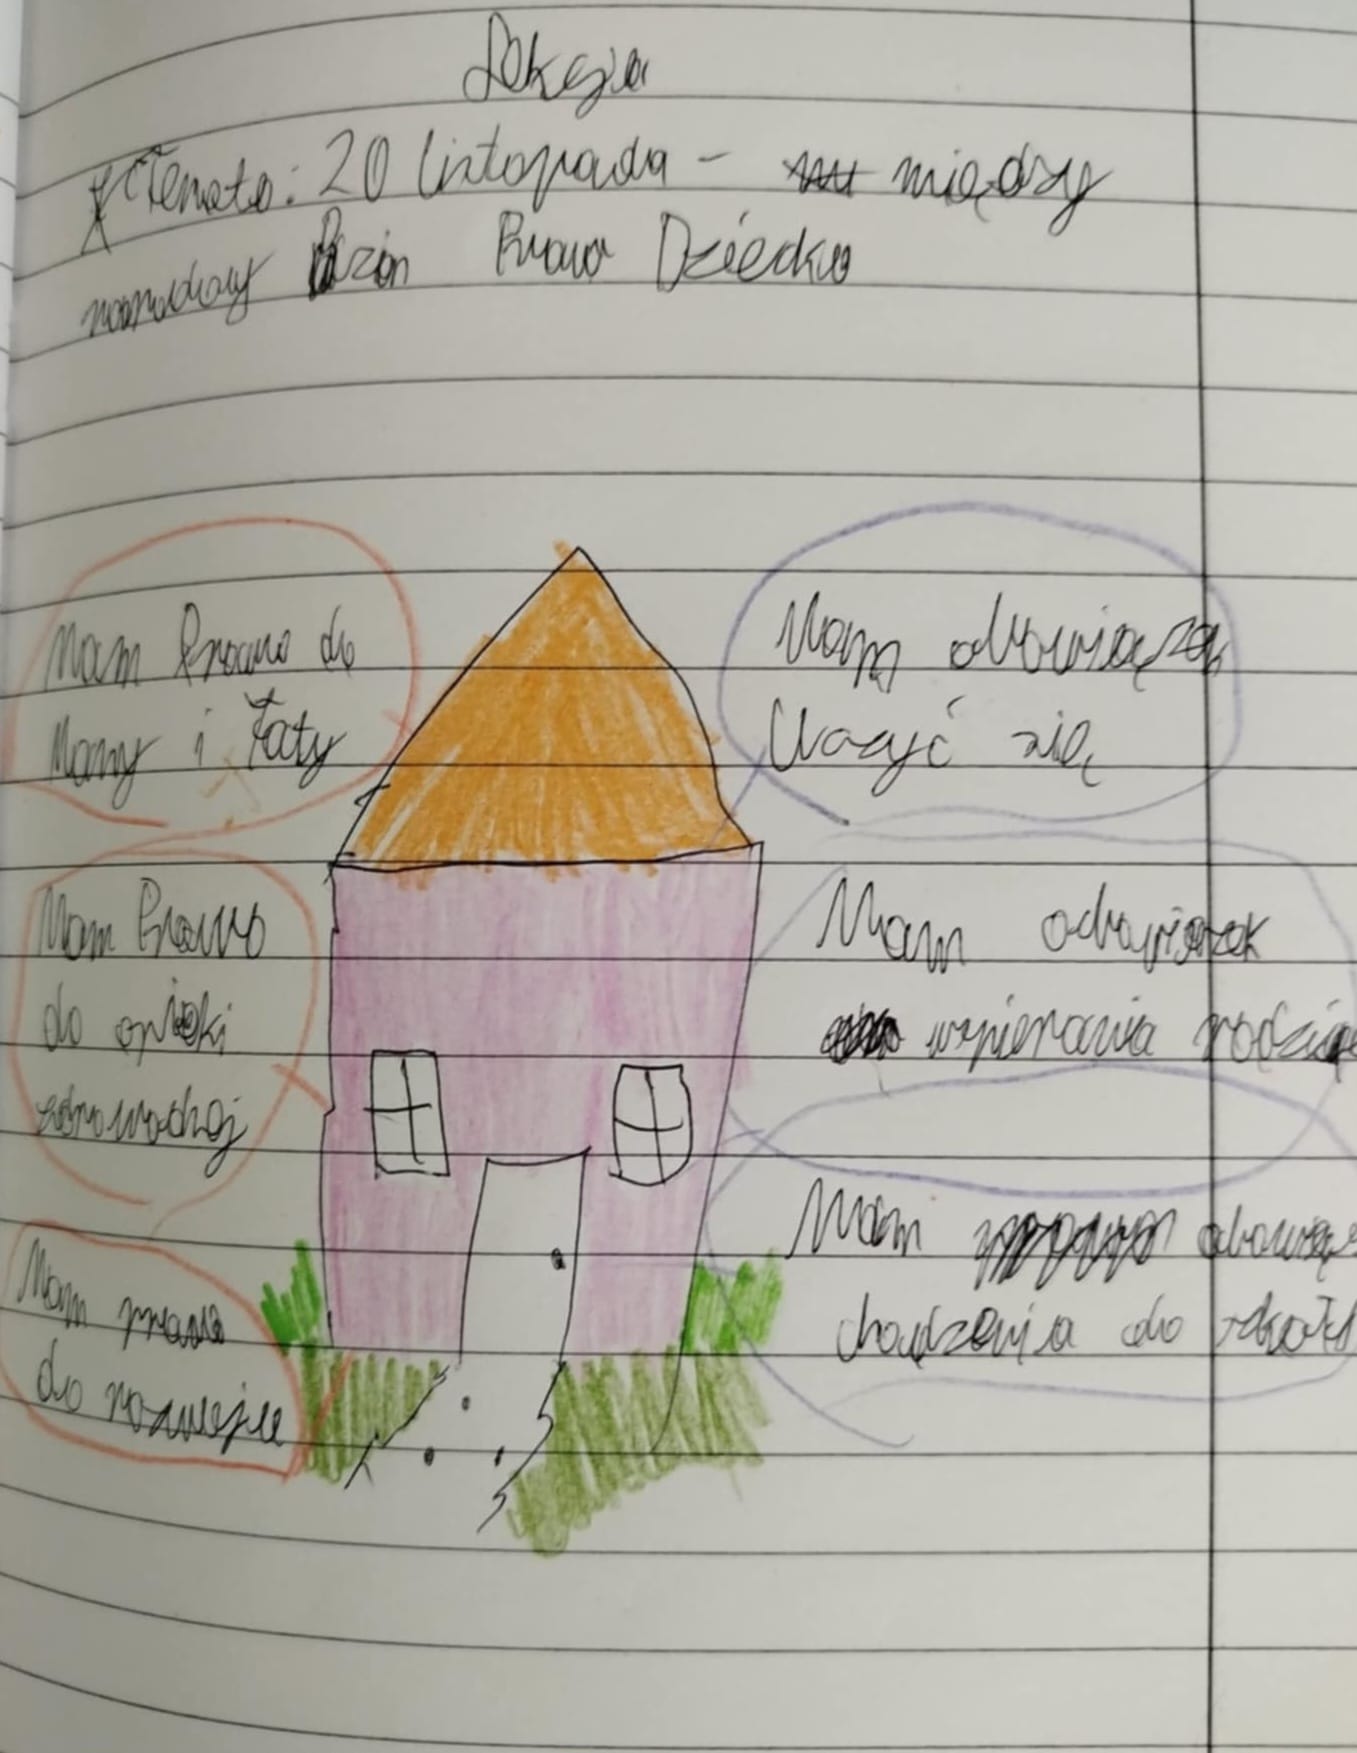 Lekcja
Temat: 20 listopada - między
narodowy Dzień Prawa Dziecka
Mam Prawo do
Mamy i Taty
Mam obowiązek
Uczyć się
Mam Prawo
do opieki
zdrowotnej
Mam obowiązek
wspierania
Mam prawo
do rozwoju
Mam
chodzenia do